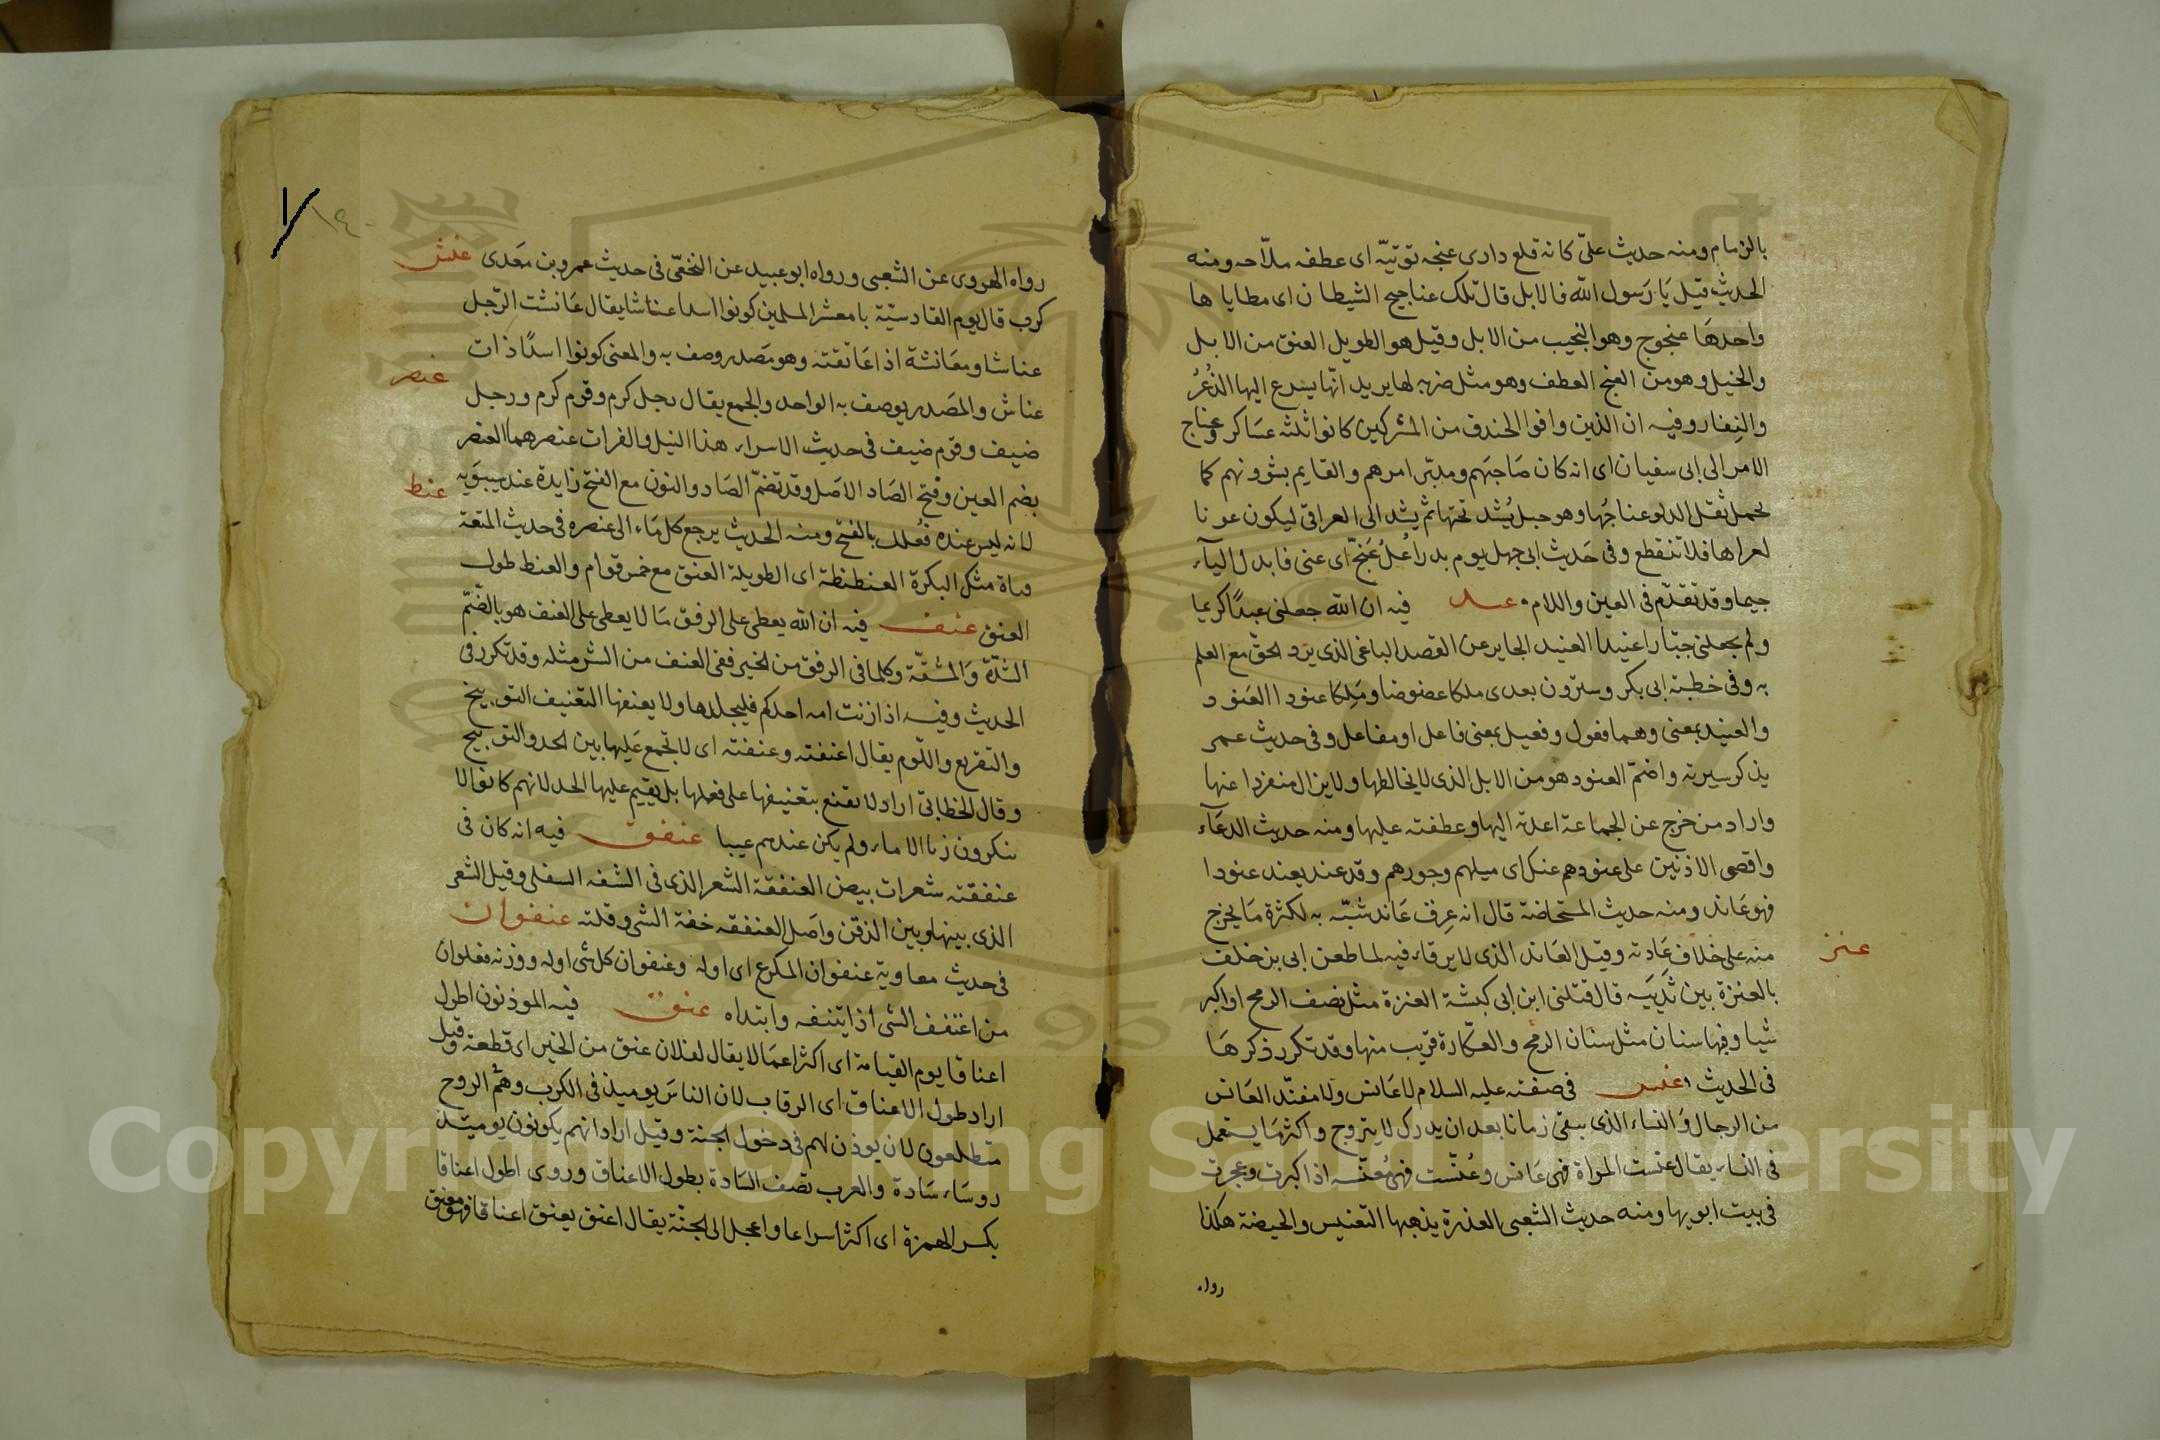 بالزمام ومنه حديث علىّ كانه قلع دارى عنجه نوتيّه اى عطفه ملّاحه ومنه
الحديث قيل يَا رَسول الله فالابل قال تلك عناجيج الشيطان اى مطاياها
واحدهَا عنجوج وهو النجيب من الابل وقيل هو الطويل العنق من الابل
والخيل وهو من العنج العطف وهو مثل ضربه لها يريد انّها يسرع اليها الذُعْرُ
والنِفار وفيه ان الذين وافوا الخندق من المشركين كانوا ثلثه عسَاكر وعناج
الامر الى ابى سفيان اى انه كان صَاحبَهم ومدبّر امرهم والقايم بشؤونهم كما
يحمل ثقل الدلو عناجُها وهو حبل يُشد تحتها ثم يشد الى العراقى ليكون عونا
لعراها فلا تنقطع وفى حَديث ابى جهل يوم بدر اُعْلُ عَنِجّ اى عنى فابدل اليآء
جيما وقد تقدّم فى العين واللام عند فيه ان الله جعلنى عبدًا كريما
ولم يجعلنى جبّارا عنيدا العنيد الجاير عن القصد الباغى الذى يرد الحقّ مع العلم
به وفى خطبة ابى بكر وسترون بعدى ملكا عضوضا ومَلِكا عنودا العَنود
والعنيد بمعنى وهما فعول وفعيل بمعنى فاعل او مفاعل وفى حديث عمر
يذكر سيرته واضمّ العنود هو من الابل الذى لا يخالطها ولا يزال منفردا عنها
واراد من خرج عن الجماعة اعدته اليها وعطفته عليها ومنه حديث الدعَآء
واقصى الادنين على عنودهم عنك اى ميلهم وجورهم وقد عند يعند عنودا
فهو عَاند ومنه حديث المستحاضة قال انه عِرق عَاند شبّه به لكثرة مَا يخرج
منه على خلاف عَادته وقيل العَاند الذى لا يرقاء فيه لما طعن ابى بن خلف
عنز
بالعنزة بين ثَديَيه قال قتلنى ابن ابى كبشة العنزة مثل نصف الرمح او اكبر
شيا وفيها سنان مثل سنان الرمح والعكّازة قريب منها وقد تكرر ذكرهَا
فى الحديث عنس فى صفته عليه السلام لا عَانس ولا مفنّد العَانس
من الرجال وَالنساء الذى يبقى زمانا بعد ان يدرك لا يتزوج واكثرهَا يستعمل
فى النساء يقال عنست المراة فهى عَانس وعُنّست فهى مُعنّسه اذا كبرت وعجزت
فى بيت ابويها ومنه حديث الشعبى العذرة يذهبها التعنيس والحيضة هكذا
رواه
رواه الهروى عن الشعبى ورواه ابو عبيد عن النخعّى فى حديث عمرو بن معَدى
عنش
كرب قال يوم القادسيّة يا معشر المسلمين كونوا اسدا عناشا يقال عَانشت الرّجل
عناشا ومعَانشة اذا عَانقته وهو مَصدر وصف به والمعنى كونوا اسدًا ذات
عنصر
عناش والمَصدر يوصف به الواحد والجمع يقال رجل كرم وقوم كرم ورجل
ضيف وقوم ضيف فى حديث الاسراء هذا النيل والفرات عنصرهما العنصر
بضم العين وفتح الصَاد الاصَل وقد تضمّ الصَاد والنون مع الفتح زايدة عند سيبوَيه
عنط
لانه ليس عنده فُعلل بالفتح ومنه الحديث يرجع كل مَاء الى عنصره فى حديث المتعة
فتاة مثل البكرة العنطنطة اى الطويلة العنق مع حسن قوام والعنط طول
العنق عنف فيه ان الله يعطى على الرفق مَا لا يعطى على العنف هو بالضمّ
الشدّة وَالمشقّة وكلما فى الرفق من الخير ففى العنف من الشر مثله وقد تكرر فى
الحديث وفيه اذا زنت امة احدكم فليجلدها ولا يعنفها التعنيف التوبيخ
والتقريع واللّوم يقال اعنفته وعنفته اى لا تجمع عَليها بين الحد والتوبيخ
وقال الخطابّى اراد لا يقنع بتعنيفها على فعلها بل يقيم عليها الحد لانهم كانوا لا
ينكرون زنا الاماء ولم يكن عندهم عيبا عنفق فيه انه كان فى
عنفقته شعرات بيض العنفقة الشعر الذى فى الشفه السفلى وقيل الشعر
الذى بينها وبين الذقن واصَل العنفقه خفة الشى وقلته عنفوان
فى حديث معاوية عنفوان المكرع اى اوله وعنفوان كل شى اوله ووزنه فعلوان
من اعتنف الشى اذا ايتنفه وابتداه عنق فيه الموذنون اطول
اعناقا يوم القيامة اى اكثر اعمَالا يقال لفلان عنق من الخير اى قطعة وقيل
اراد طول الاعناق اى الرقاب لان الناسَ يوميذ فى الكرب وهُم فى الروح
متطلعون لان يوذن لهم فى دخول الجنة وقيل اراد انهم يكونون يوميذ
روسَاء سَادة والعرب تصَف السَادة بطول الاعناق وروى اطول اعناقا
بكسر الهمزة اى اكثر اسراعا واعجل الى الجنّة يقال اعنق يعنق اعناقا فهو معنق
Copyright © King Saud University